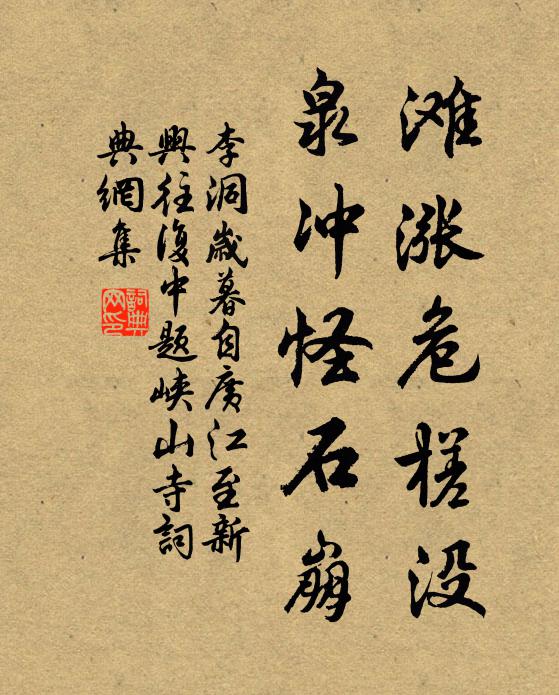 滩涨危槎没
泉冲怪石崩
李洞歳暮自廣江至新
興往復中題峽山寺詞
典網集
詞典
网印